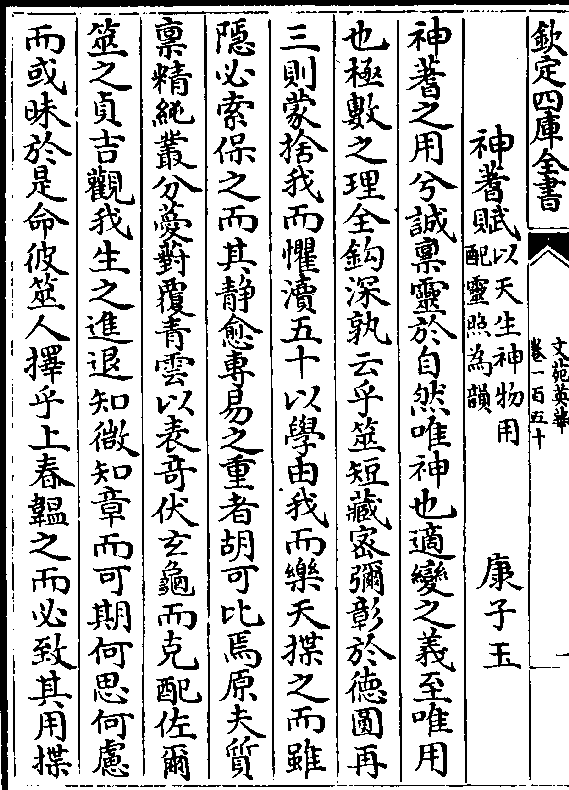 欽定四庫全書
文苑英華
卷一百五十
一
神蓍賦以天生神物用
配靈照為韻
康子玉
神蓍之用兮誠稟靈於自然唯神也適變之義至唯用
也極數之理全鈎深孰云乎筮短藏宻彌彰於德圓再
三則蒙捨我而懼瀆五十以學由我而樂天揲之而雖
隱必索保之而其静愈專易之重者胡可比焉原夫質
稟精純叢分薆蔚覆青雲以表竒伏玄龜而克配佐爾
筮之貞吉觀我生之進退知微知章而可期何思何慮
而或昧於是命彼筮人擇乎上春韞之而必致其用揲